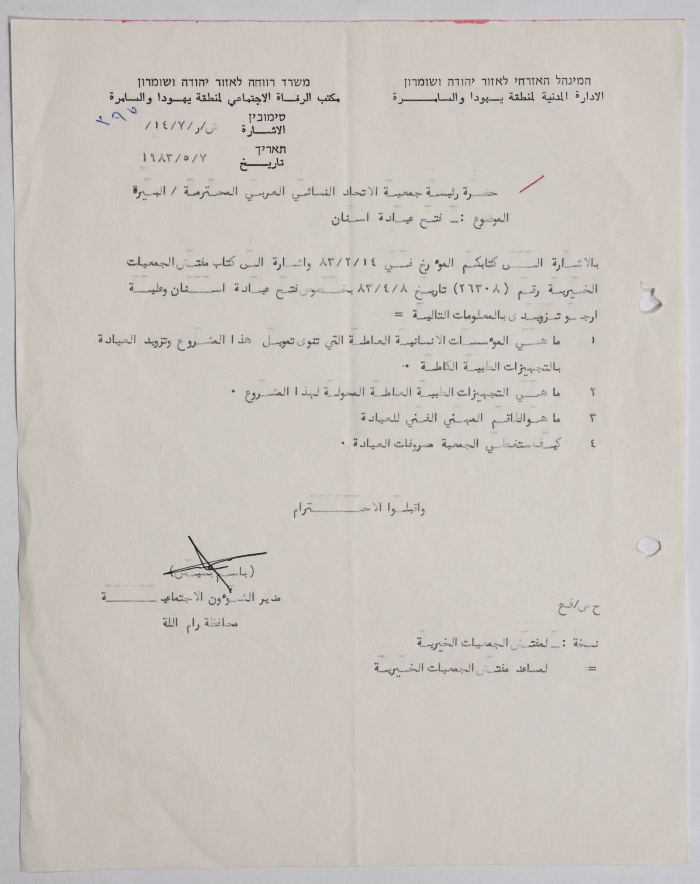 המינהל האזרחי לאזור יהודה ושומרון
الادارة المدنية لمنطقة يهودا والسامرة
משרד רווחה לאזור יהודה ושומרון
مكتب الرفاة الاجتماعي لمنطقة يهودا والسامرة
סימוכין
الاشارة ش/ر/١٤/٧/
תאריך
تاريخ ١٩٨٣/٥/٧
حضرة رئيسة جمعية الاتحاد النسائي العربي المحترمة / البيرة
الموضوع :ـ فتح عيادة اسنان
بالاشارة الى كتابكم المؤرخ في ٨٣/٢/١٤ واشارة الى كتاب مفتش الجمعيات
الخيرية رقم (٢٦٣٠٨) تاريخ ٨٣/٤/٨ بخصوص فتح عيادة اسنان وعليه
ارجو تزويدي بالمعلومات التالية =
١ ما هي المؤسسات الانسانية العاملة التي تنوى تمويل هذا المشروع وتزويد العيادة
بالتجهيزات الطبية الكاملة ٠
٢ ما هي التجهيزات الطبية العاملة المحولة لهذا المشروع ٠
٣ ما هو الطاقم المهني الفني للعيادة
٤ كيف ستغطي الجمعية مصروفات العيادة ٠
واقبلوا الاحترام
(باسم
مدير الشؤون الاجتماعية
محافظة رام الله
ح س/فع
نسخة :ـ لمفتش الجمعيات الخيرية
= لمساعد مفتش الجمعيات الخيرية